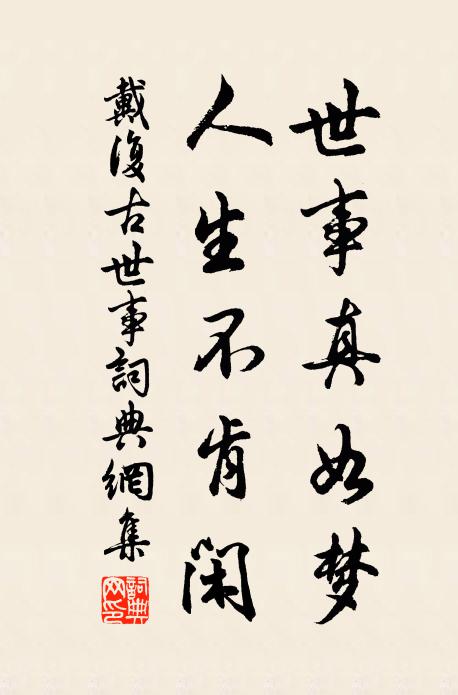 世事真如梦
人生不肯闲
戴復古世事詞典網集
詞典网印